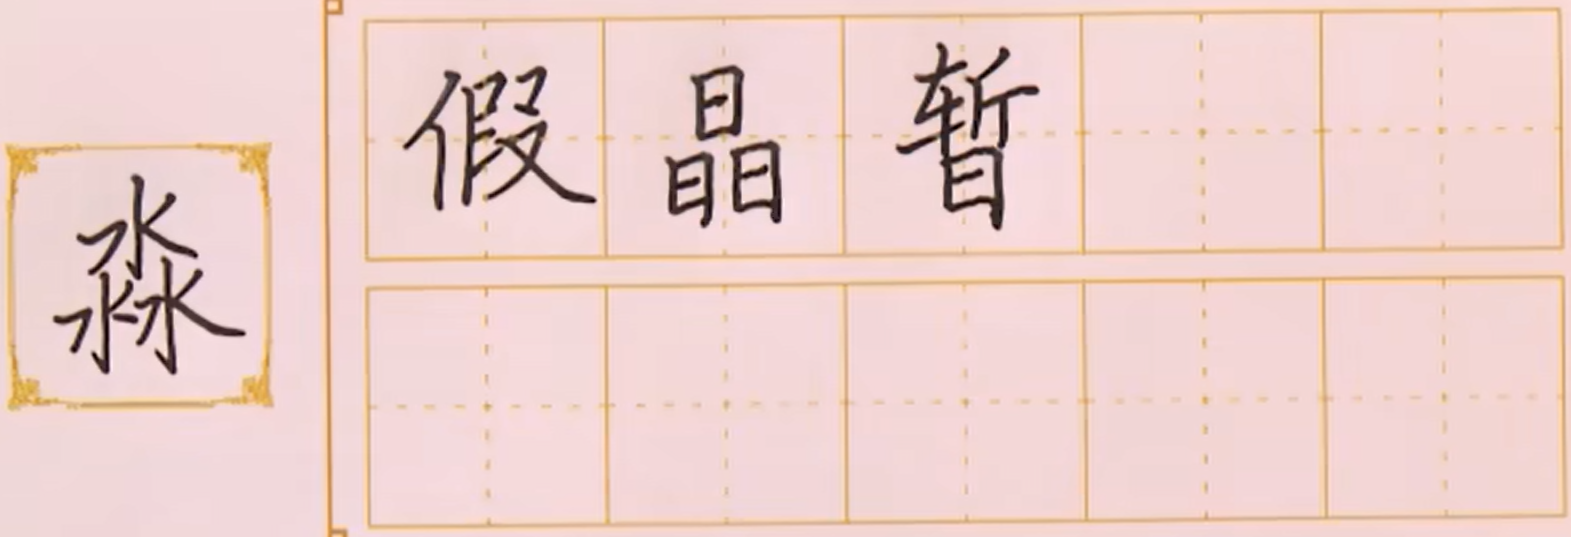 淼
假晶暂